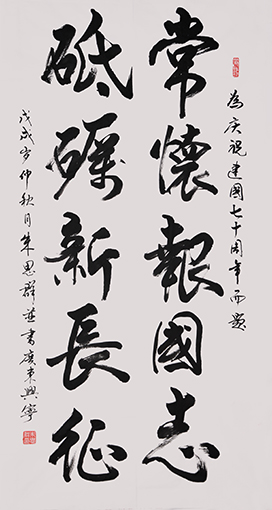 為庆祝建國七十周年而题
常懷報國志
砥礪新長征
戊戌岁仲秋月朱思群並書广東興寧